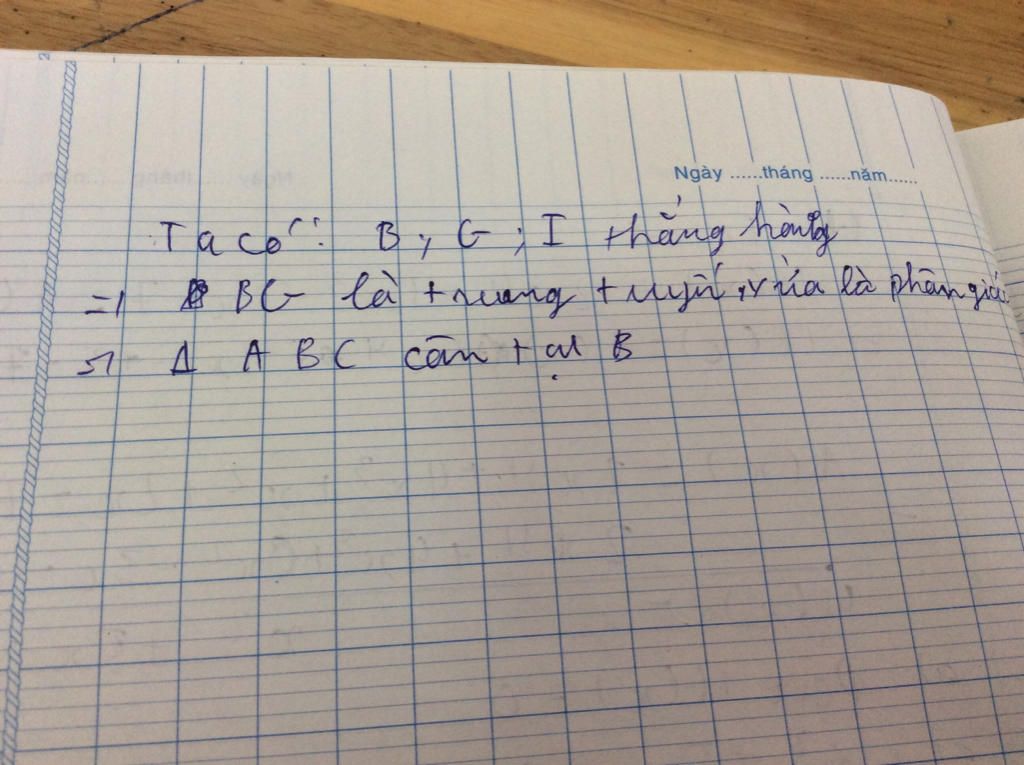 Ngày ......tháng ......năm......
Ta có: B, G, I thẳng hàng
=> BG là trung tuyến, vừa là phân giác
=> Δ ABC cân tại B